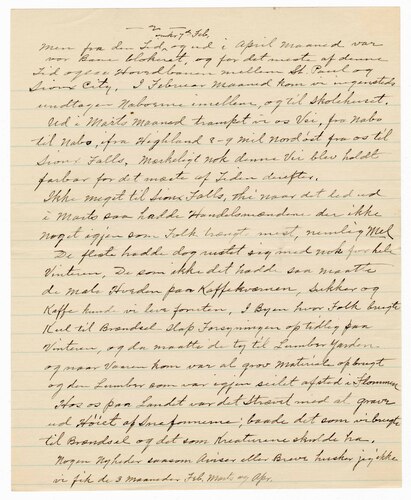 2
omkr 7th Feb,
Men fra den Tid, og ud i April Maaned var
vor bane blokeret, og for det meste af denne
Tid ogsaa Hovedbanen mellem St. Paul og
Sioux City. I Februar Maaned kom vi ingensteds
undtagen Naborne imellem, og til Skolehuset.
Ud i Marts Maaned trampt vi os Vei, fra Nabo
til Nabo, fra Highland 8-9 mil Nordøst fra os til
Sioux Falls. Merkeligt nok denne Vei blev holdt
farbar for det meste af Tiden derefter.
Ikke meget til Sioux Falls, thi naar det led ud
i Marts saa hadde Handelsmændene der ikke
noget igjen som Folk trængt mest, nemlig Mel
De fleste hadde dog rustet sig med nok for hele
Vinteren. De som ikke det hadde saa maatte
de male Hveden paa Kaffekværnen, Sukker og
Kaffe kunde vi leve foruten. I Byen hvor Folk brugte
Kul til Brændsel slap Forsyningen op tidlig paa
Vinteren, og da maatte de ty til Lumber Yarden
og naar Vaaren kom var al grov Materiale opbrugt
og den Lumber som var igjen seilt afsted i Flommen
Hos os paa Landet var det Strævet med at grave
ud Høiet af Snefonnerne, baade det som vi brugte
til Brændsel og det som Kreaturene skulde ha.
Nogen Nyheder saasom Aviser eller Breve husker jeg ikke
vi fik de 3 maaneder Feb, Marts og Apr.